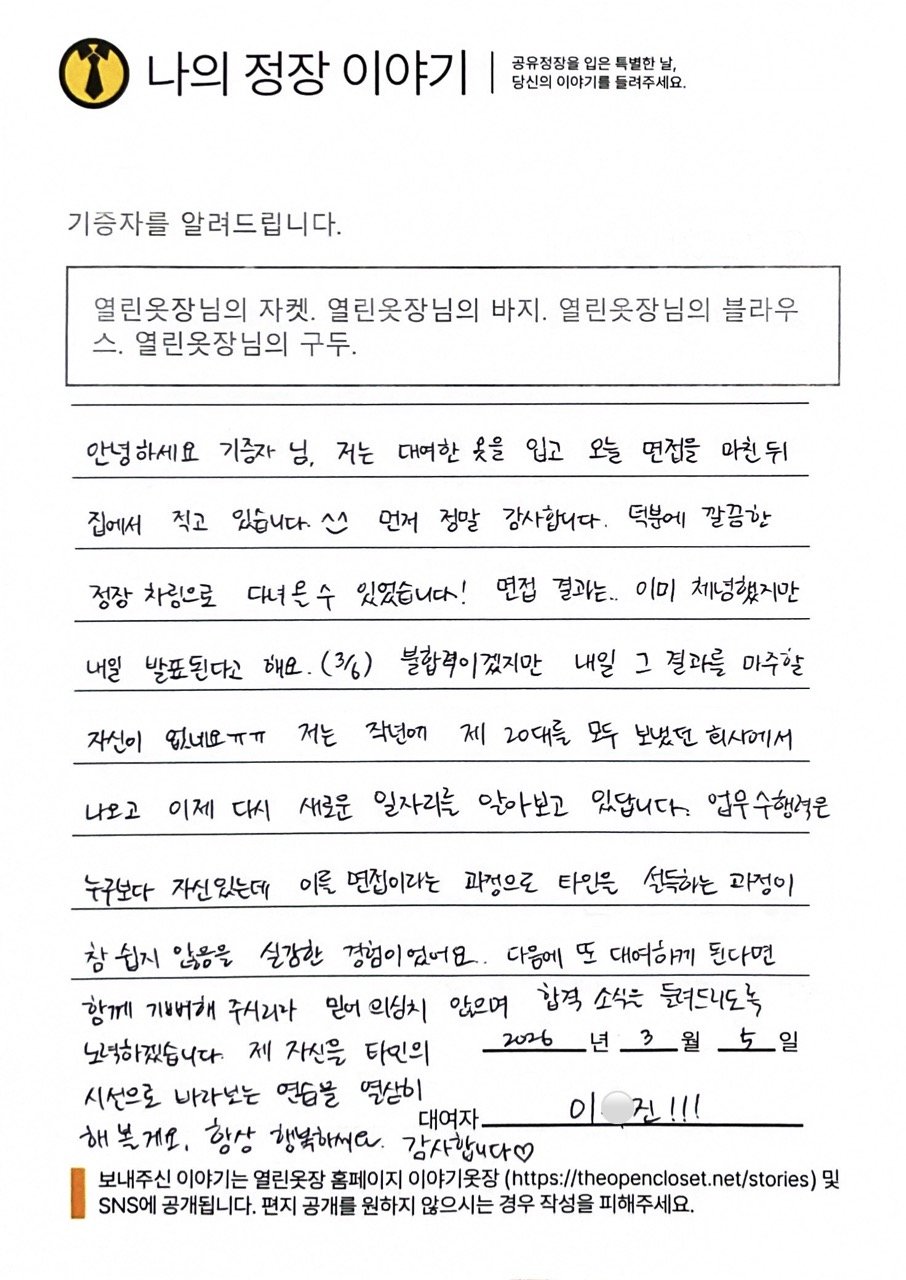 나의 정장 이야기
공유정장을 입은 특별한 날,
당신의 이야기를 들려주세요.
기증자를 알려드립니다.
열린옷장님의 자켓. 열린옷장님의 바지. 열린옷장님의 블라우
스. 열린옷장님의 구두.
안녕하세요 기증자 님, 저는 대여한 옷을 입고 오늘 면접을 마친 뒤
집에서 적고 있습니다. ^^ 먼저 정말 감사합니다. 덕분에 깔끔한
정장 차림으로 다녀올 수 있었습니다! 면접 결과는.. 이미 체념했지만
내일 발표된다고 해요. (3/6) 불합격이겠지만 내일 그 결과를 마주할
자신이 없네요ㅠㅠ 저는 작년에 제 20대를 모두 보냈던 회사에서
나오고 이제 다시 새로운 일자리를 알아보고 있답니다. 업무수행력은
누구보다 자신있는데 이를 면접이라는 과정으로 타인을 설득하는 과정이
참 쉽지 않음을 실감한 경험이었어요.. 다음에 또 대여하게 된다면
함께 기뻐해 주시리라 믿어 의심치 않으며 합격 소식을 들려드리도록
노력하겠습니다. 제 자신을 타인의
시선으로 바라보는 연습을 열심히
해 볼게요. 항상 행복하세요. 감사합니다♡
2026 년 3 월 5 일
대여자 이 진!!!
보내주신 이야기는 열린옷장 홈페이지 이야기옷장 (https://theopencloset.net/stories) 및
SNS에 공개됩니다. 편지 공개를 원하지 않으시는 경우 작성을 피해주세요.